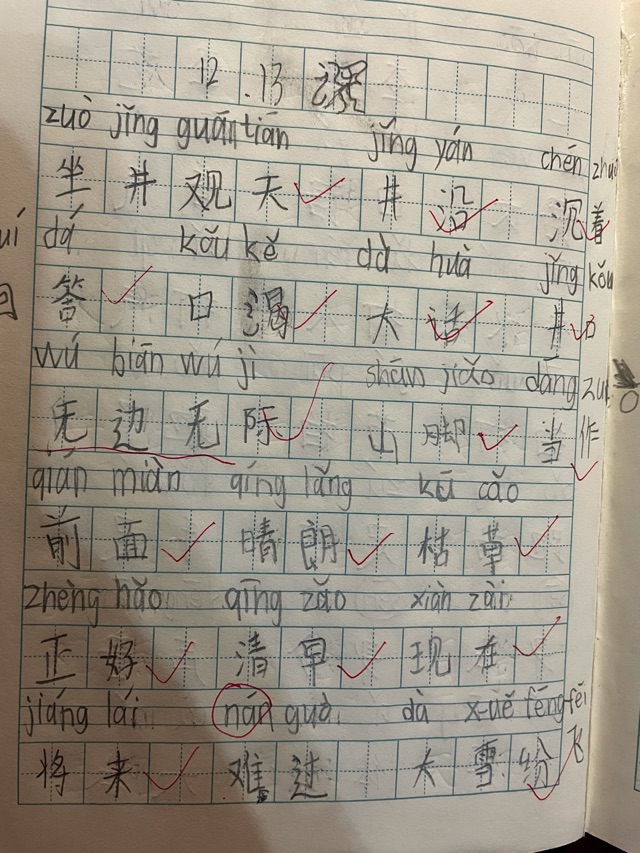 12.13 课
zuò jǐng guān tiān jǐng yán chén zhuó
坐井观天 井沿 沉着
dá kǒu kě dà huà jǐng kǒu
回答 口渴 大话 井口
wú biān wú jì shān jiǎo dāng zuò
无边无际 山脚 当作
qián miàn qíng lǎng kū cǎo
前面 晴朗 枯草
zhèng hǎo qīng zǎo xiàn zài
正好 清早 现在
jiāng lái nán guò dà xuě fēng fēi
将来 难过 大雪纷飞